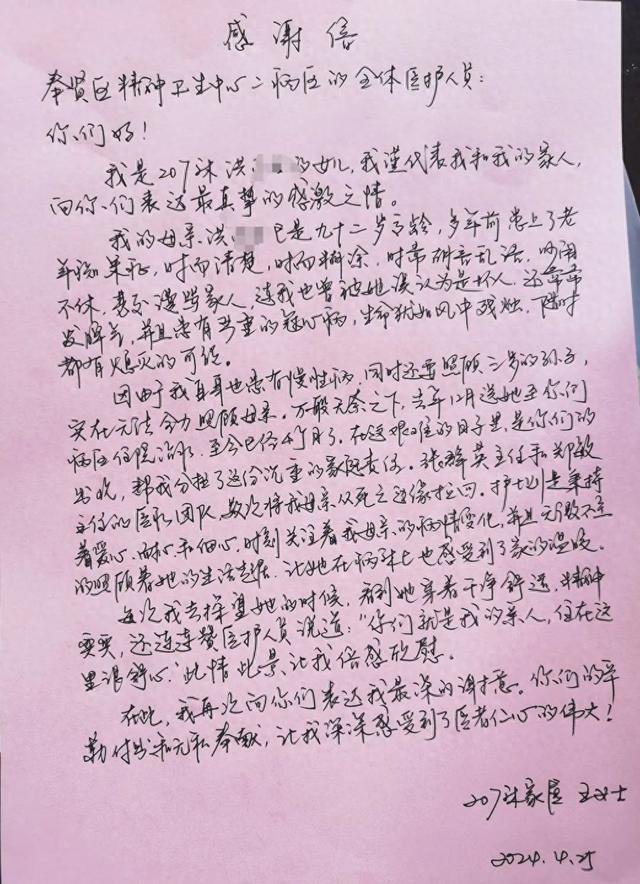 感谢信
奉贤区精神卫生中心二病区的全体医护人员：
你们好！
我是207床洪的女儿，我谨代表我和我的家人，
向你们表达最真挚的感激之情。
我的母亲洪已是九十二岁高龄，多年前患上了老
年痴呆症，时而清楚，时而糊涂，时常胡言乱语，吵闹
不休，甚至谩骂家人，连我也曾被她误认为是坏人，还常常
发脾气，并且患有严重的冠心病，生命犹如风中残烛，随时
都有熄灭的可能。
因由于我自身也患有慢性病，同时还要照顾二岁的孙子，
实在无法全力照顾母亲。万般无奈之下，去年12月送她至你们
病区住院治疗，至今已经4个月了。在这艰难的日子里，是你们的
出现，帮我分担了这份沉重的家庭责任。张群英主任和郑敏
主任的医疗团队，数次将我母亲从死亡边缘拉回。护士们是秉持
着爱心、耐心和细心，时刻关注着我母亲的病情变化，并且无微不至
的照顾着她的生活起居，让她在病床上也感受到了家的温暖。
每次我去探望她的时候，看到她穿着干净舒适，精神
奕奕，还连连赞医护人员说道：“你们就是我的亲人，住在这
里很舒心。”此情此景，让我倍感欣慰。
在此，我再次向你们表达我最深的谢意。你们的辛
勤付出和无私奉献，让我深深感受到了医者仁心的伟大！
207床家属 王女士
2024.4.25